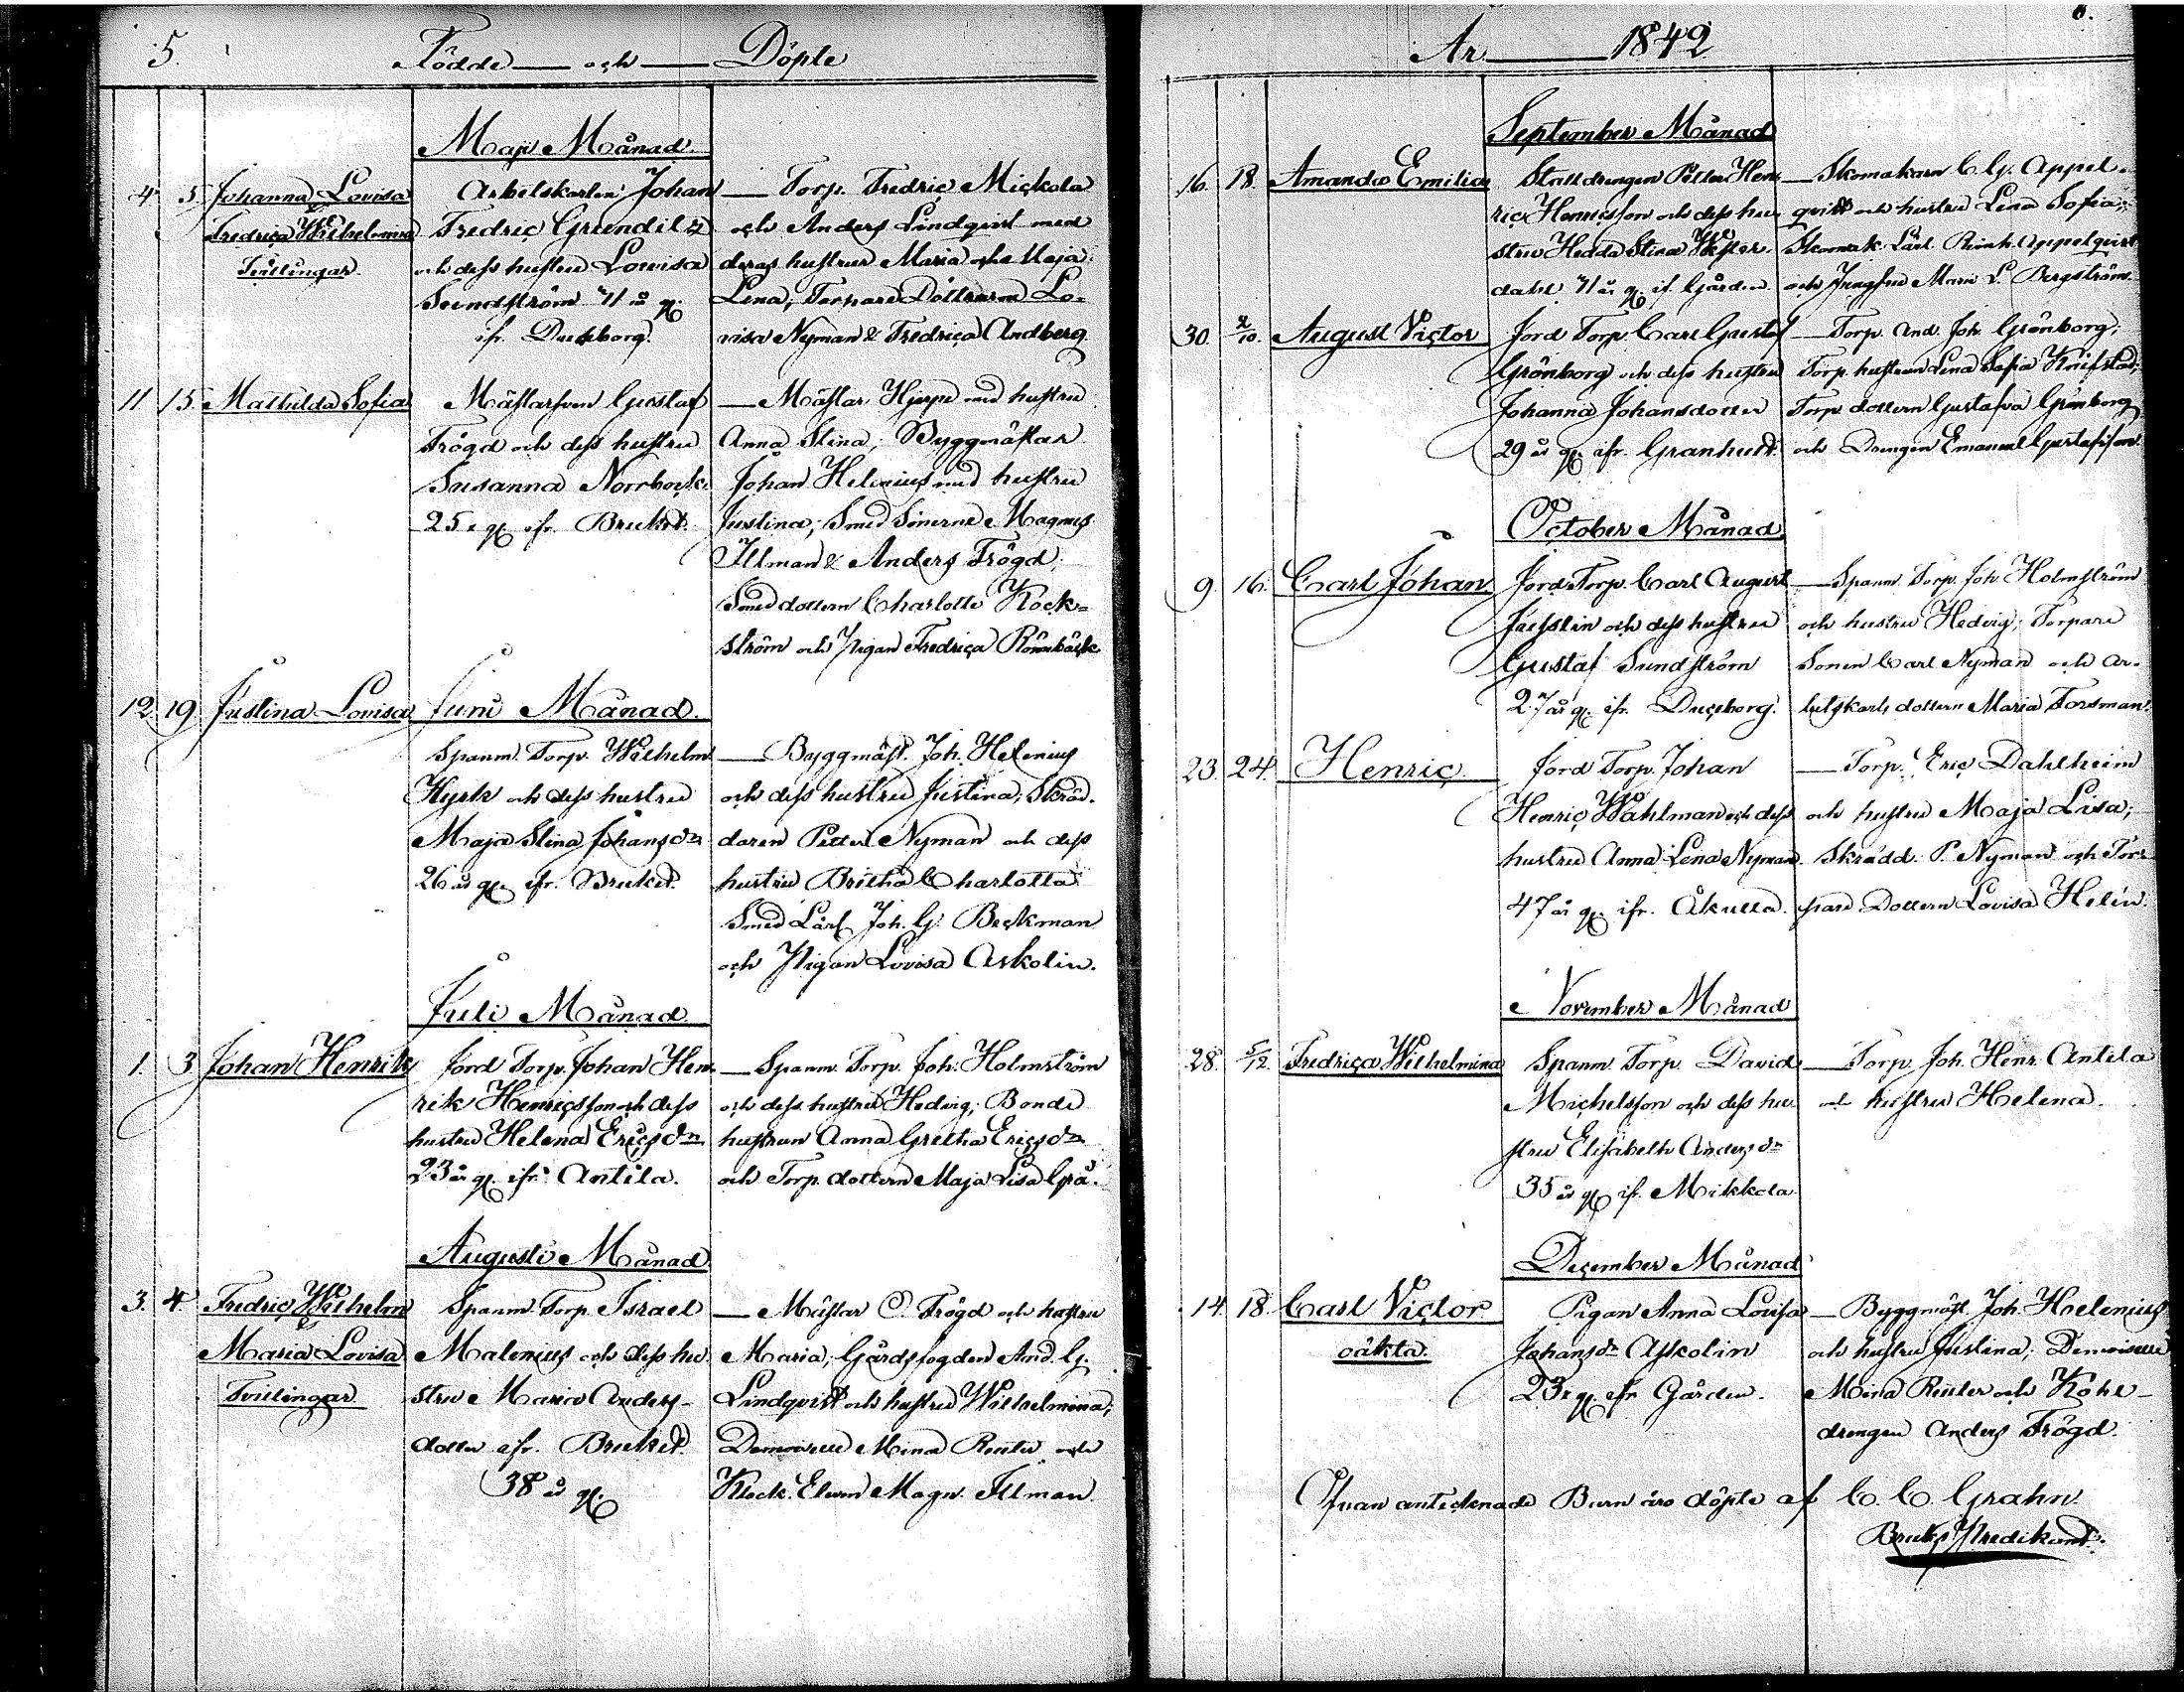 5.
Födde — och — Döpte
Maji Månad.
4 5 Johanna Lovisa
&
Fredrica Wilhelmina
Tvillingar
Arbetskarlen Johan
Fredric Grundil
och dess hustru Lovisa
Sundström 41 år gl.
ifr.
— Torp. Fredric Mickola
och Anders Lindqvist med
deras hustrur Maria och Maja
Lena; Torpare Döttrarna Lo-
visa Nyman & Fredrica Andberg.
11 15 Mathilda Sofia
Mästarsven Gustaf
Trögd och dess hustru
Susanna
25 år gl. ifr. Bruket.
— Mästar Hjerpe med hustru
Anna Stina; Byggmästar
Johan Helenius med hustru
Justina; Smed Sönerne Magnus
Illman & Anders Trögd;
Smed dottern Charlotte Kock-
ström och Pigan Fredrica Rönnbäck
12 19 Justina Lovisa
Juni Månad.
Spanm. Torp. Wilhelm
och dess hustru
Maja Stina Johansdr
26 år gl. ifr. Bruket.
— Byggmäst. Joh. Helenius
och dess hustru Justina; Skräd-
daren Petter Nyman och dess
hustru Britha Charlotta
Smed Lärl. Joh. G. Beckman
och Pigan Lovisa Askolin.
Juli Månad
1. 3 Johan Henrik
Jord Torp. Johan Hen-
rik Henricsson och dess
hustru Helena Ericsdr
23 år gl. ifr. Antila.
— Spanm. Torp. Joh. Holmström
och dess hustru Hedvig; Bonde
hustrun Anna Gretha Ericsdr
och Torp. dottern Maja Lisa Grå.
Augusti Månad
3. 4. Fredric Wilhelm
&
Maria Lovisa
Tvillingar
Spanm. Torp. Israel
Malenius och dess hu-
stru Maria Anders-
dotter ifr. Bruket.
38 år gl.
— Mästar O. Trögd och hustru
Maria; Gårdsfogden And. G.
Lindqvist och hustru Wilhelmina;
Demoiselle Mina Reuter och
Klock. Eleven Magn. Illman.
6.
År — 1842
September Månad
16. 18. Amanda Emilia
Stalldrengen Petter Hen-
ric Henricsson och dess hu-
stru Hedda Stina Wester-
dahl 41 år gl. if. Gården.
— Skomakarn C. G. Appel-
qvist och hustru Lena Sofia;
Skomak. Lärl. Reinh. Appelqvist
och Jungfru Maria L. Bergström.
30. 2/10. August Victor
Jord Torp. Carl Gustaf
Grönborg och dess hustru
Johanna Johansdotter
29 år gl. ifr. Granhult.
— Torp. And. Joh. Grönborg;
Torp. hustrun Lena Sofia Knifstad;
Torp. dottern Gustafva Grönborg
och Drengen Emanuel Gustafsson.
October Månad
9. 16. Carl Johan
Jord Torp. Carl August
och dess hustru
Gustaf Sundström
27 år gl. ifr.
— Spanm. Torp. Joh. Holmström
och hustru Hedvig; Torpare
Sonen Carl Nyman och Ar-
betskarls dottern Maria Forsman.
23. 24. Henric
Jord Torp. Johan
Henric Wahlman och dess
hustru Anna Lena Nyman
47 år gl. ifr. Åkulla.
— Torp. Eric Dahlheim
och hustru Maja Lisa;
Skrädd. P. Nyman och Tor-
pare Dottern Lovisa Helin.
November Månad
28. 5/12. Fredrica Wilhelmina
Spanm. Torp. David
Michelsson och dess hu-
stru Elisabeth Andersdr
35 år gl. if. Mikkola.
— Torp. Joh. Henr. Antila
och hustru Helena.
December Månad
14. 18. Carl Victor
oäkta.
Pigan Anna Lovisa
Johansdr Askolin
23 år gl. ifr. Gården.
— Byggmäst. Joh. Helenius
och hustru Justina; Demoiselle
Mina Reuter och Kohl-
drengen Anders Trögd.
Ofvan antecknade Barn äro döpte af C. C. Grahn.
Bruks Predikant.